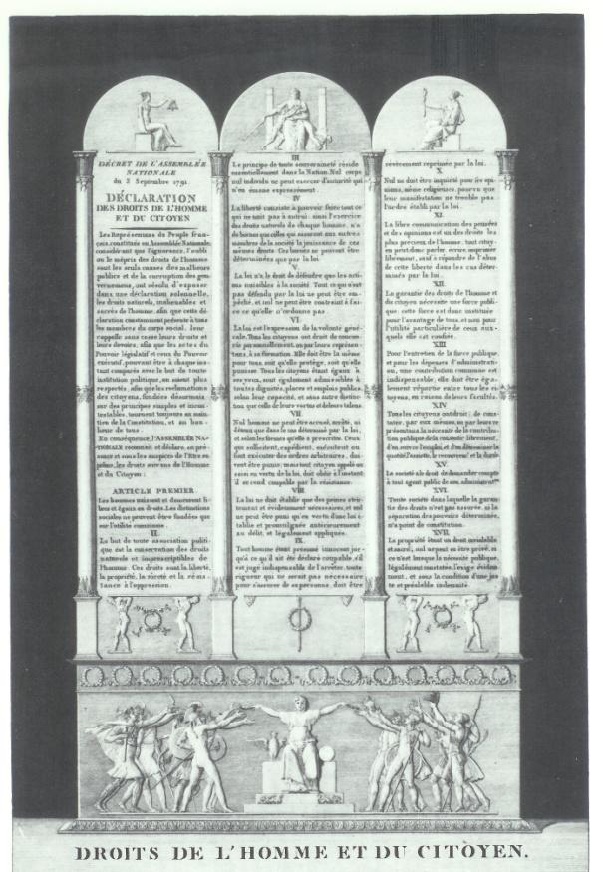 DÉCRET DE L'ASSEMBLÉE
NATIONALE
du 3 Septembre 1791
DÉCLARATION
DES DROITS DE L'HOMME
ET DU CITOYEN
Les Représentans du Peuple fran-
çois constitués en Assemblée Nationale,
considérant que l'ignorance, l'oubli
ou le mépris des droits de l'homme
sont les seuls causes des malheurs
publics et de la corruption des gou-
vernemens, ont résolu d'exposer
dans une déclaration solennelle,
les droits naturels, inaliénables et
sacrés de l'homme; afin que cette dé-
claration constamment présente à tous
les membres du corps social, leur
rappelle sans cesse leurs droits et
leurs devoirs, afin que les actes du
Pouvoir législatif et ceux du Pouvoir
exécutif, pouvant être à chaque ins-
tant comparés avec le but de toute
institution politique, en soient plus
respectés, afin que les réclamations
des citoyens, fondées désormais
sur des principes simples et incon-
testables, tournent toujours au main-
tien de la Constitution, et au bon-
heur de tous.
En conséquence, l'ASSEMBLÉE NA-
TIONALE reconnoit et déclare, en pré-
sence et sous les auspices de l'Être su-
prême, les droits suivans de l'Homme
et du Citoyen:
ARTICLE PREMIER
Les hommes naissent et demeurent li-
bres et égaux en droits. Les distinctions
sociales ne peuvent être fondées que
sur l'utilité commune.
II.
Le but de toute association politi-
que est la conservation des droits
naturels et imprescriptibles de
l'homme. Ces droits sont la liberté,
la propriété, la sureté et la résis-
tance à l'oppression.
III
Le principe de toute souveraineté réside
essentiellement dans la Nation. Nul corps
nul individu ne peut exercer d'autorité qui
n'en émane expressément.
IV
La liberté consiste à pouvoir faire tout ce
qui ne nuit pas à autrui: ainsi l'exercice
des droits naturels de chaque homme, n'a
de bornes que celles qui assurent aux autres
membres de la société la jouissance de ces
mêmes droits. Ces bornes ne peuvent être
déterminées que par la loi.
V.
La loi n'a le droit de défendre que les acti-
ons nuisibles à la société. Tout ce qui n'est
pas défendu par la loi ne peut être em-
pêché, et nul ne peut être contraint à fai-
re ce qu'elle n'ordonne pas
VI.
La loi est l'expression de la volonté géné-
rale. Tous les citoyens ont droit de concou-
rir personnellement, ou par leurs représen-
tans, à sa formation. Elle doit être la même
pour tous, soit qu'elle protège, soit qu'elle
punisse. Tous les citoyens étant égaux à
ses yeux, sont également admissibles à
toutes dignités, places et emplois publics,
selon leur capacité, et sans autre distinc-
tion que celle de leurs vertus et de leurs talens.
VII
Nul homme ne peut être accusé, arrêté, ni
détenu que dans les cas déterminés par la loi,
et selon les formes qu'elle a prescrites. Ceux
qui sollicitent, expédient, exécutent ou
font exécuter des ordres arbitraires, doi-
vent être punis; mais tout citoyen appelé ou
saisi en vertu de la loi, doit obéir à l'instant
il se rend coupable par la résistance.
VIII
La loi ne doit établir que des peines stric-
tement et évidemment nécessaires, et nul
ne peut être puni qu'en vertu d'une loi é-
tablie et promulguée antérieurement
au délit, et légalement appliquée.
IX.
Tout homme étant présumé innocent jus-
qu'à ce qu'il ait été déclaré coupable, s'il
est jugé indispensable de l'arrêter, toute
rigueur qui ne serait pas nécessaire
pour s'assurer de sa personne, doit être
sévèrement reprimée par la loi.
X.
Nul ne doit être inquiété pour ses opi-
nions, même religieuses, pourvu que
leur manifestation ne trouble pas
l'ordre établi par la loi.
XI.
La libre communication des pensées
et des opinions est un des droits les
plus précieux de l'homme: tout citoy-
en peut donc parler, écrire, imprimer
librement, sauf à répondre de l'abus
de cette liberté dans les cas déter-
minés par la loi.
XII
La garantie des droits de l'homme et
du citoyen nécessite une force publi-
que: cette force est donc instituée
pour l'avantage de tous, et non pour
l'utilité particulière de ceux aux-
quels elle est confiée.
XIII
Pour l'entretien de la force publique,
et pour les dépenses d'administrati-
on, une contribution commune est
indispensable; elle doit être éga-
lement répartie entre tous les ci-
toyens, en raison de leurs facultés.
XIV
Tous les citoyens ont droit de cons-
tater, par eux mêmes, ou par leurs re-
présentans, la nécessité de la contribu-
tion publique, de la consentir librement,
d'en suivre l'emploi, et d'en déterminer la
quotité, l'assiette, le recouvrement et la durée.
XV.
La société a le droit de demander compte
à tout agent public de son administ.on
XVI.
Toute société dans laquelle la garan-
tie des droits n'est pas assurée, ni la
séparation des pouvoirs déterminée,
n'a point de constitution.
XVII.
La propriété étant un droit inviolable
et sacré, nul ne peut en être privé, si
ce n'est lorsque la nécessité publique,
légalement constatée, l'exige évidem-
ment, et sous la condition d'une jus-
te et préalable indemnité.
DROITS DE L'HOMME ET DU CITOYEN.